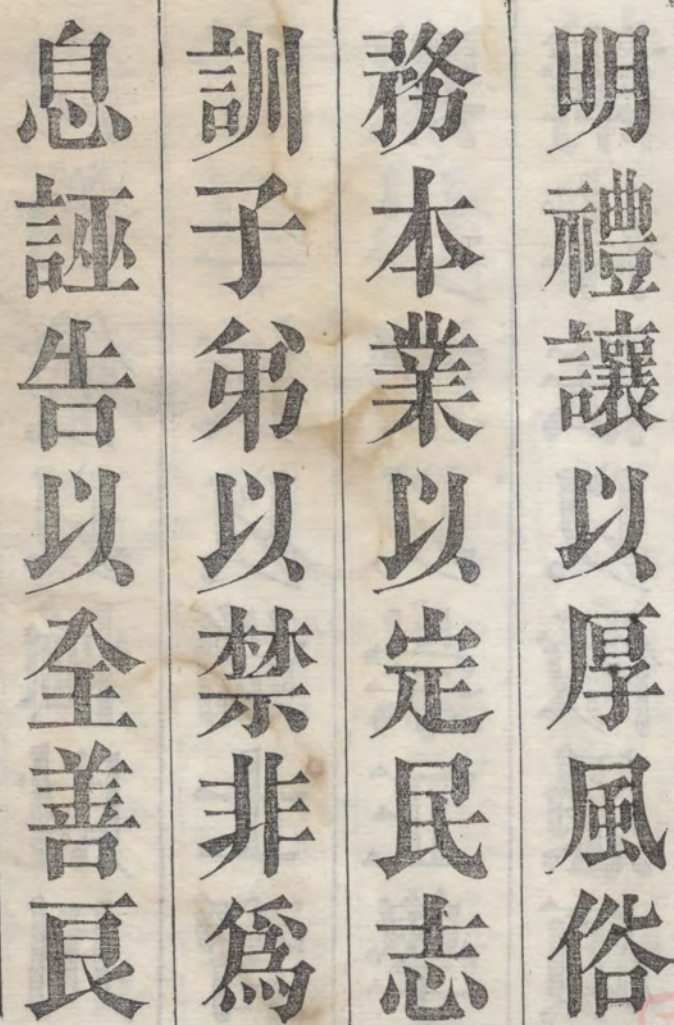 明禮讓以厚風俗
務本業以定民志
訓子弟以禁非爲
息誣告以全善良